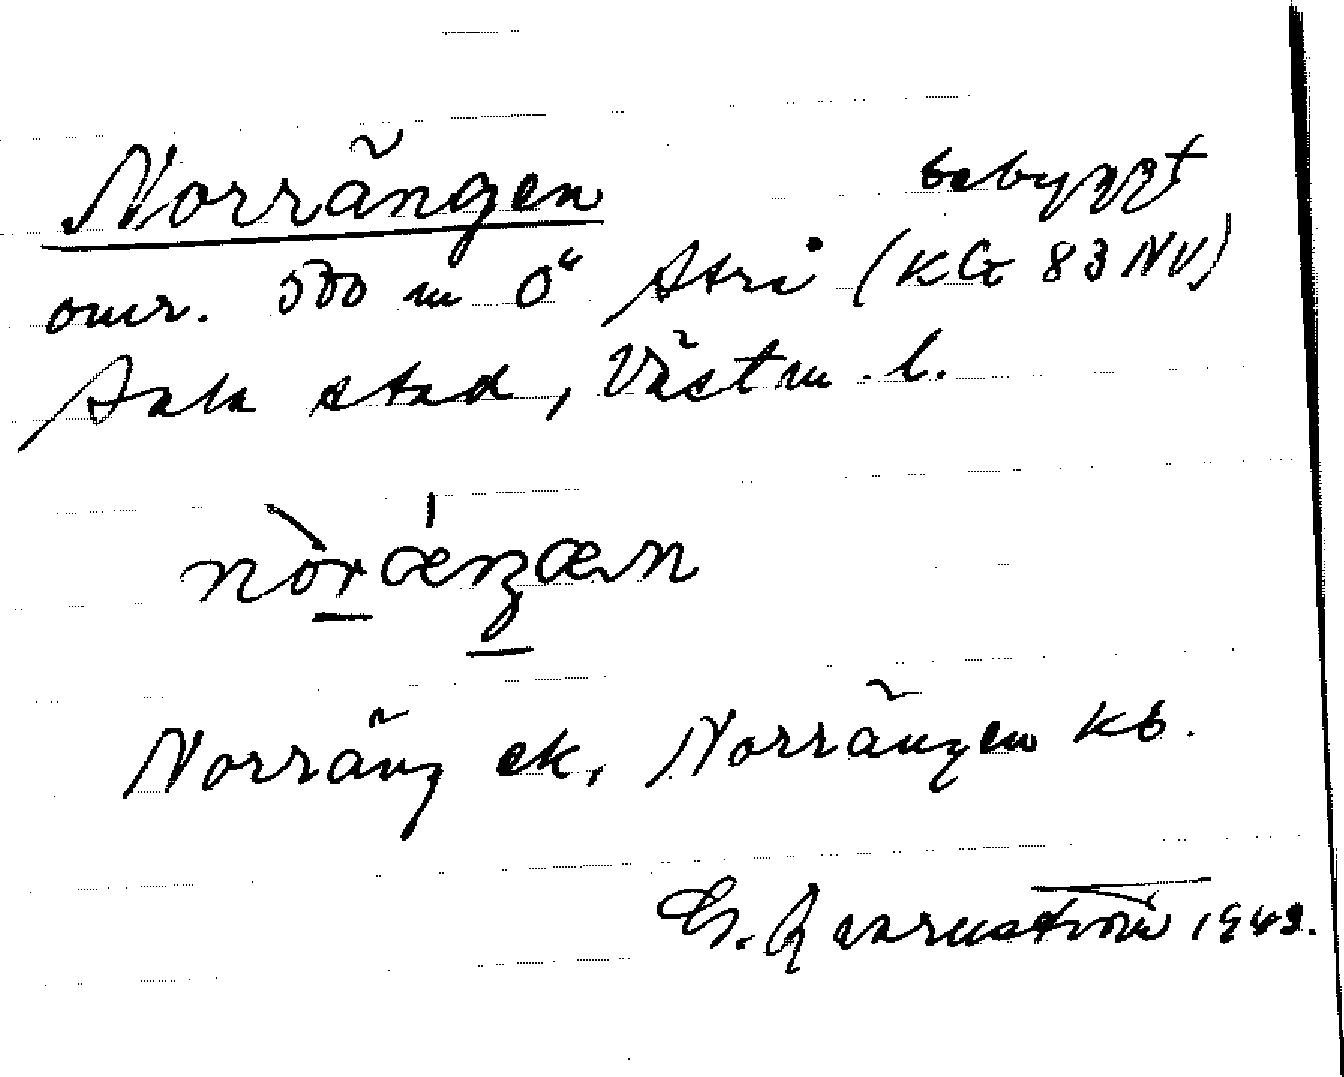 Norrängen bebyggt
omr. 500 m Ö Stri (KG 83 NV)
Sala stad, Västm. l.
nòrǽngæn
Norräng ek, Norrängen kb.
G. Qvarnström 1943.